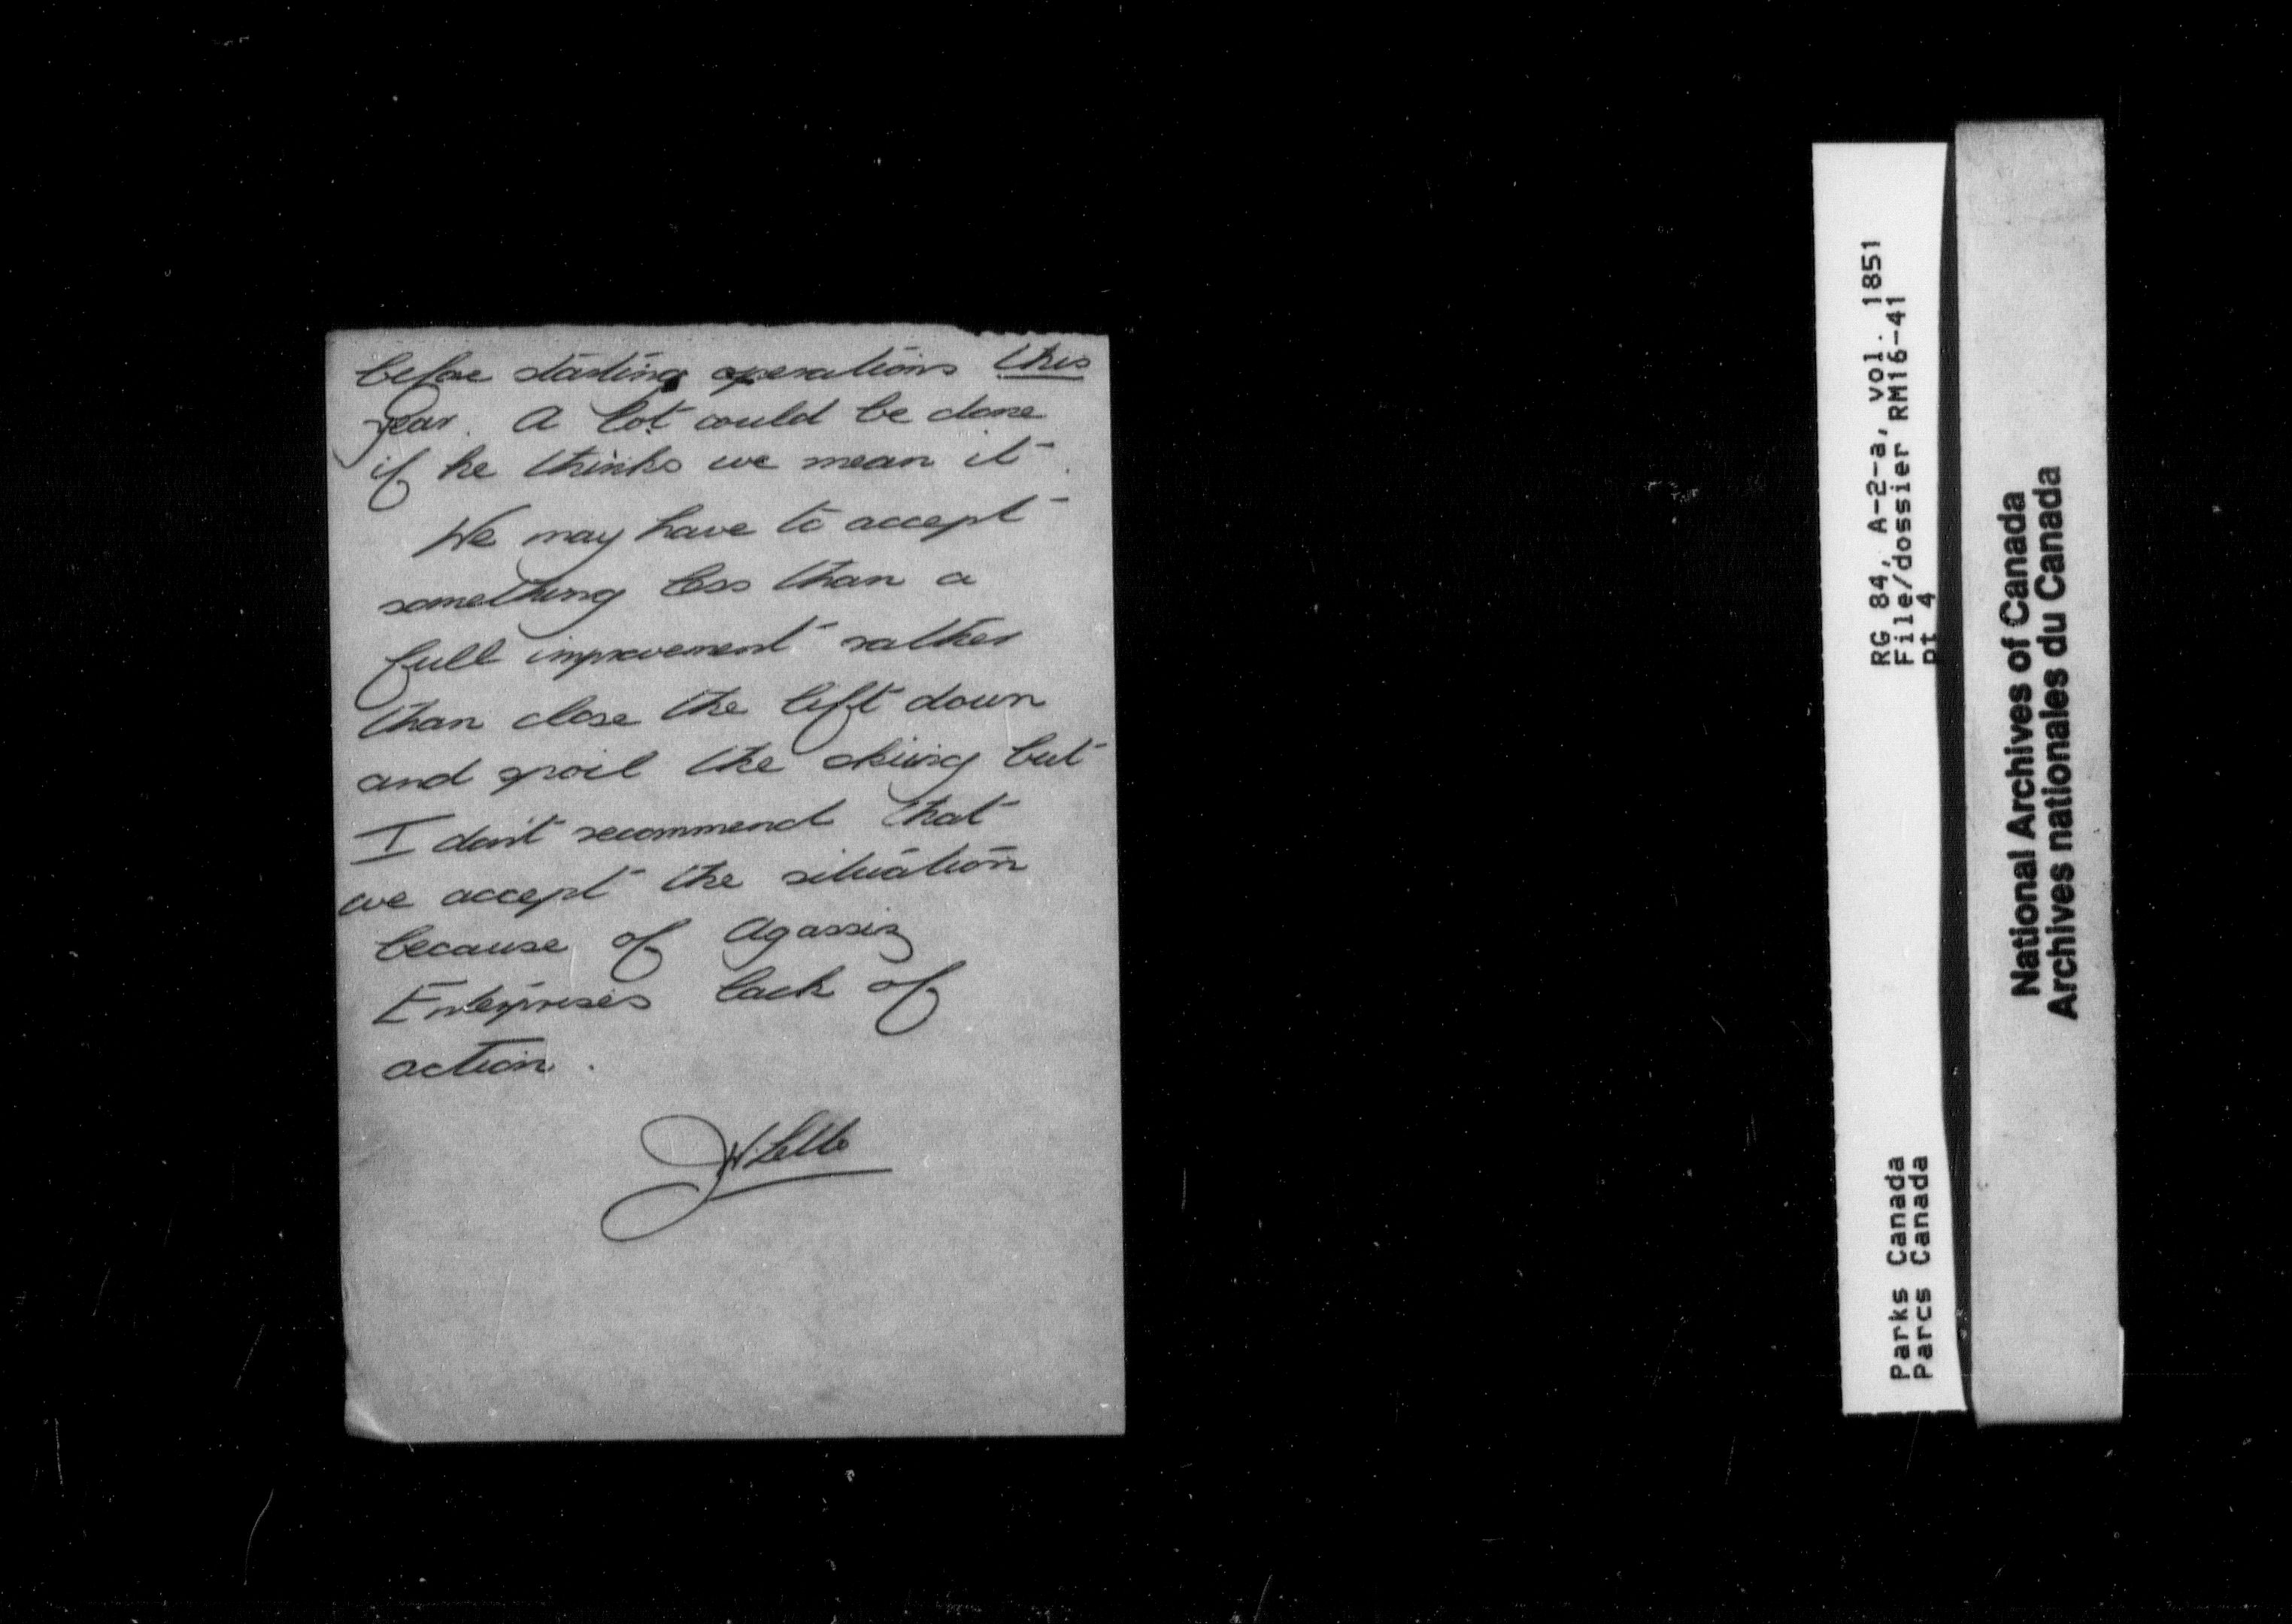 before starting operations this
year. A lot could be done
if he thinks we mean it.
We may have to accept
something less than a
full improvement rather
than close the lift down
and spoil the skiing but
I don't recommend that
we accept the situation
because of Agassiz
Enterprises lack of
action.
RG 84, A-2-a, vol. 1851
File/dossier RM16-41
pt 4
Parks Canada
Parcs Canada
National Archives of Canada
Archives nationales du Canada